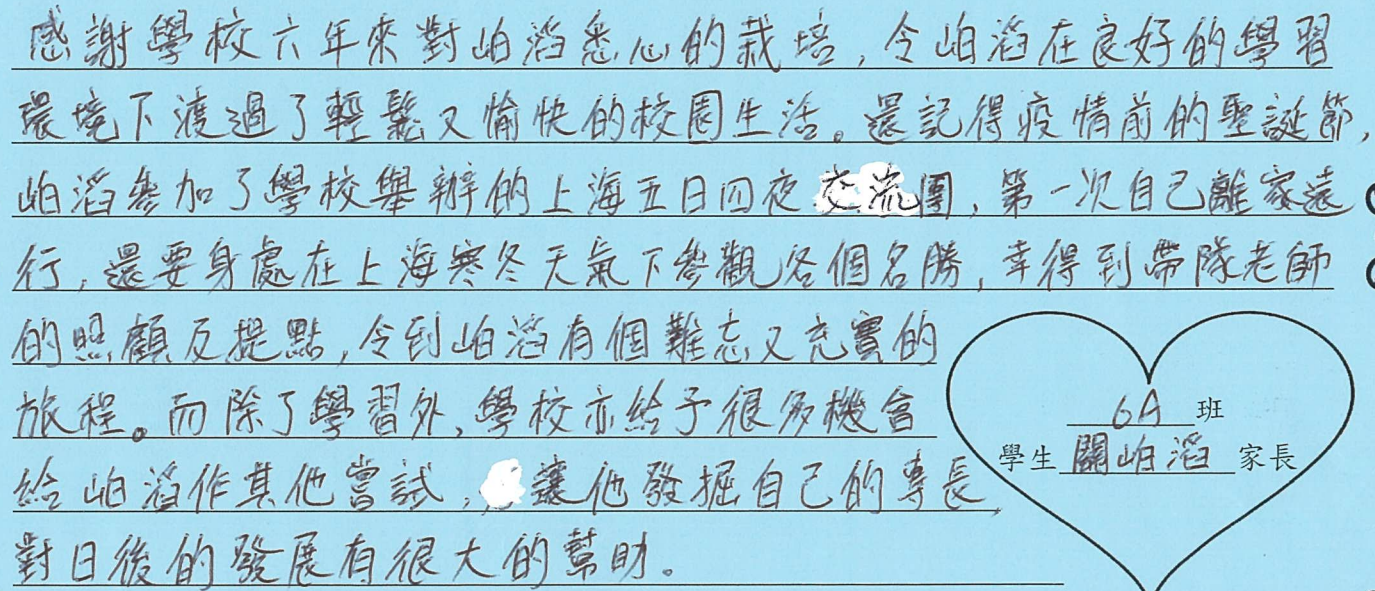 感謝學校六年來對岶滔悉心的栽培,令岶滔在良好的學習
環境下渡過了輕鬆又愉快的校園生活。還記得疫情前的聖誕節,
岶滔參加了學校舉辦的上海五日四夜交流團,第一次自己離家遠
行,還要身處在上海寒冬天氣下參觀各個名勝,幸得到帶隊老師
的照顧及提點,令到岶滔有個難忘又充實的
旅程。而除了學習外,學校亦給予很多機會
給岶滔作其他嘗試,讓他發掘自己的專長,
對日後的發展有很大的幫助。
6A班
學生關岶滔家長